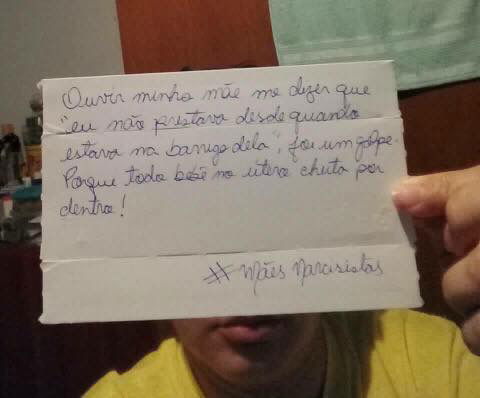 Ouvir minha mãe me dizer que
"eu não prestava desde quando
estava na barriga dela", foi um golpe.
Porque todo bebê no útero chuta por
dentro!
# Mães Narcisistas